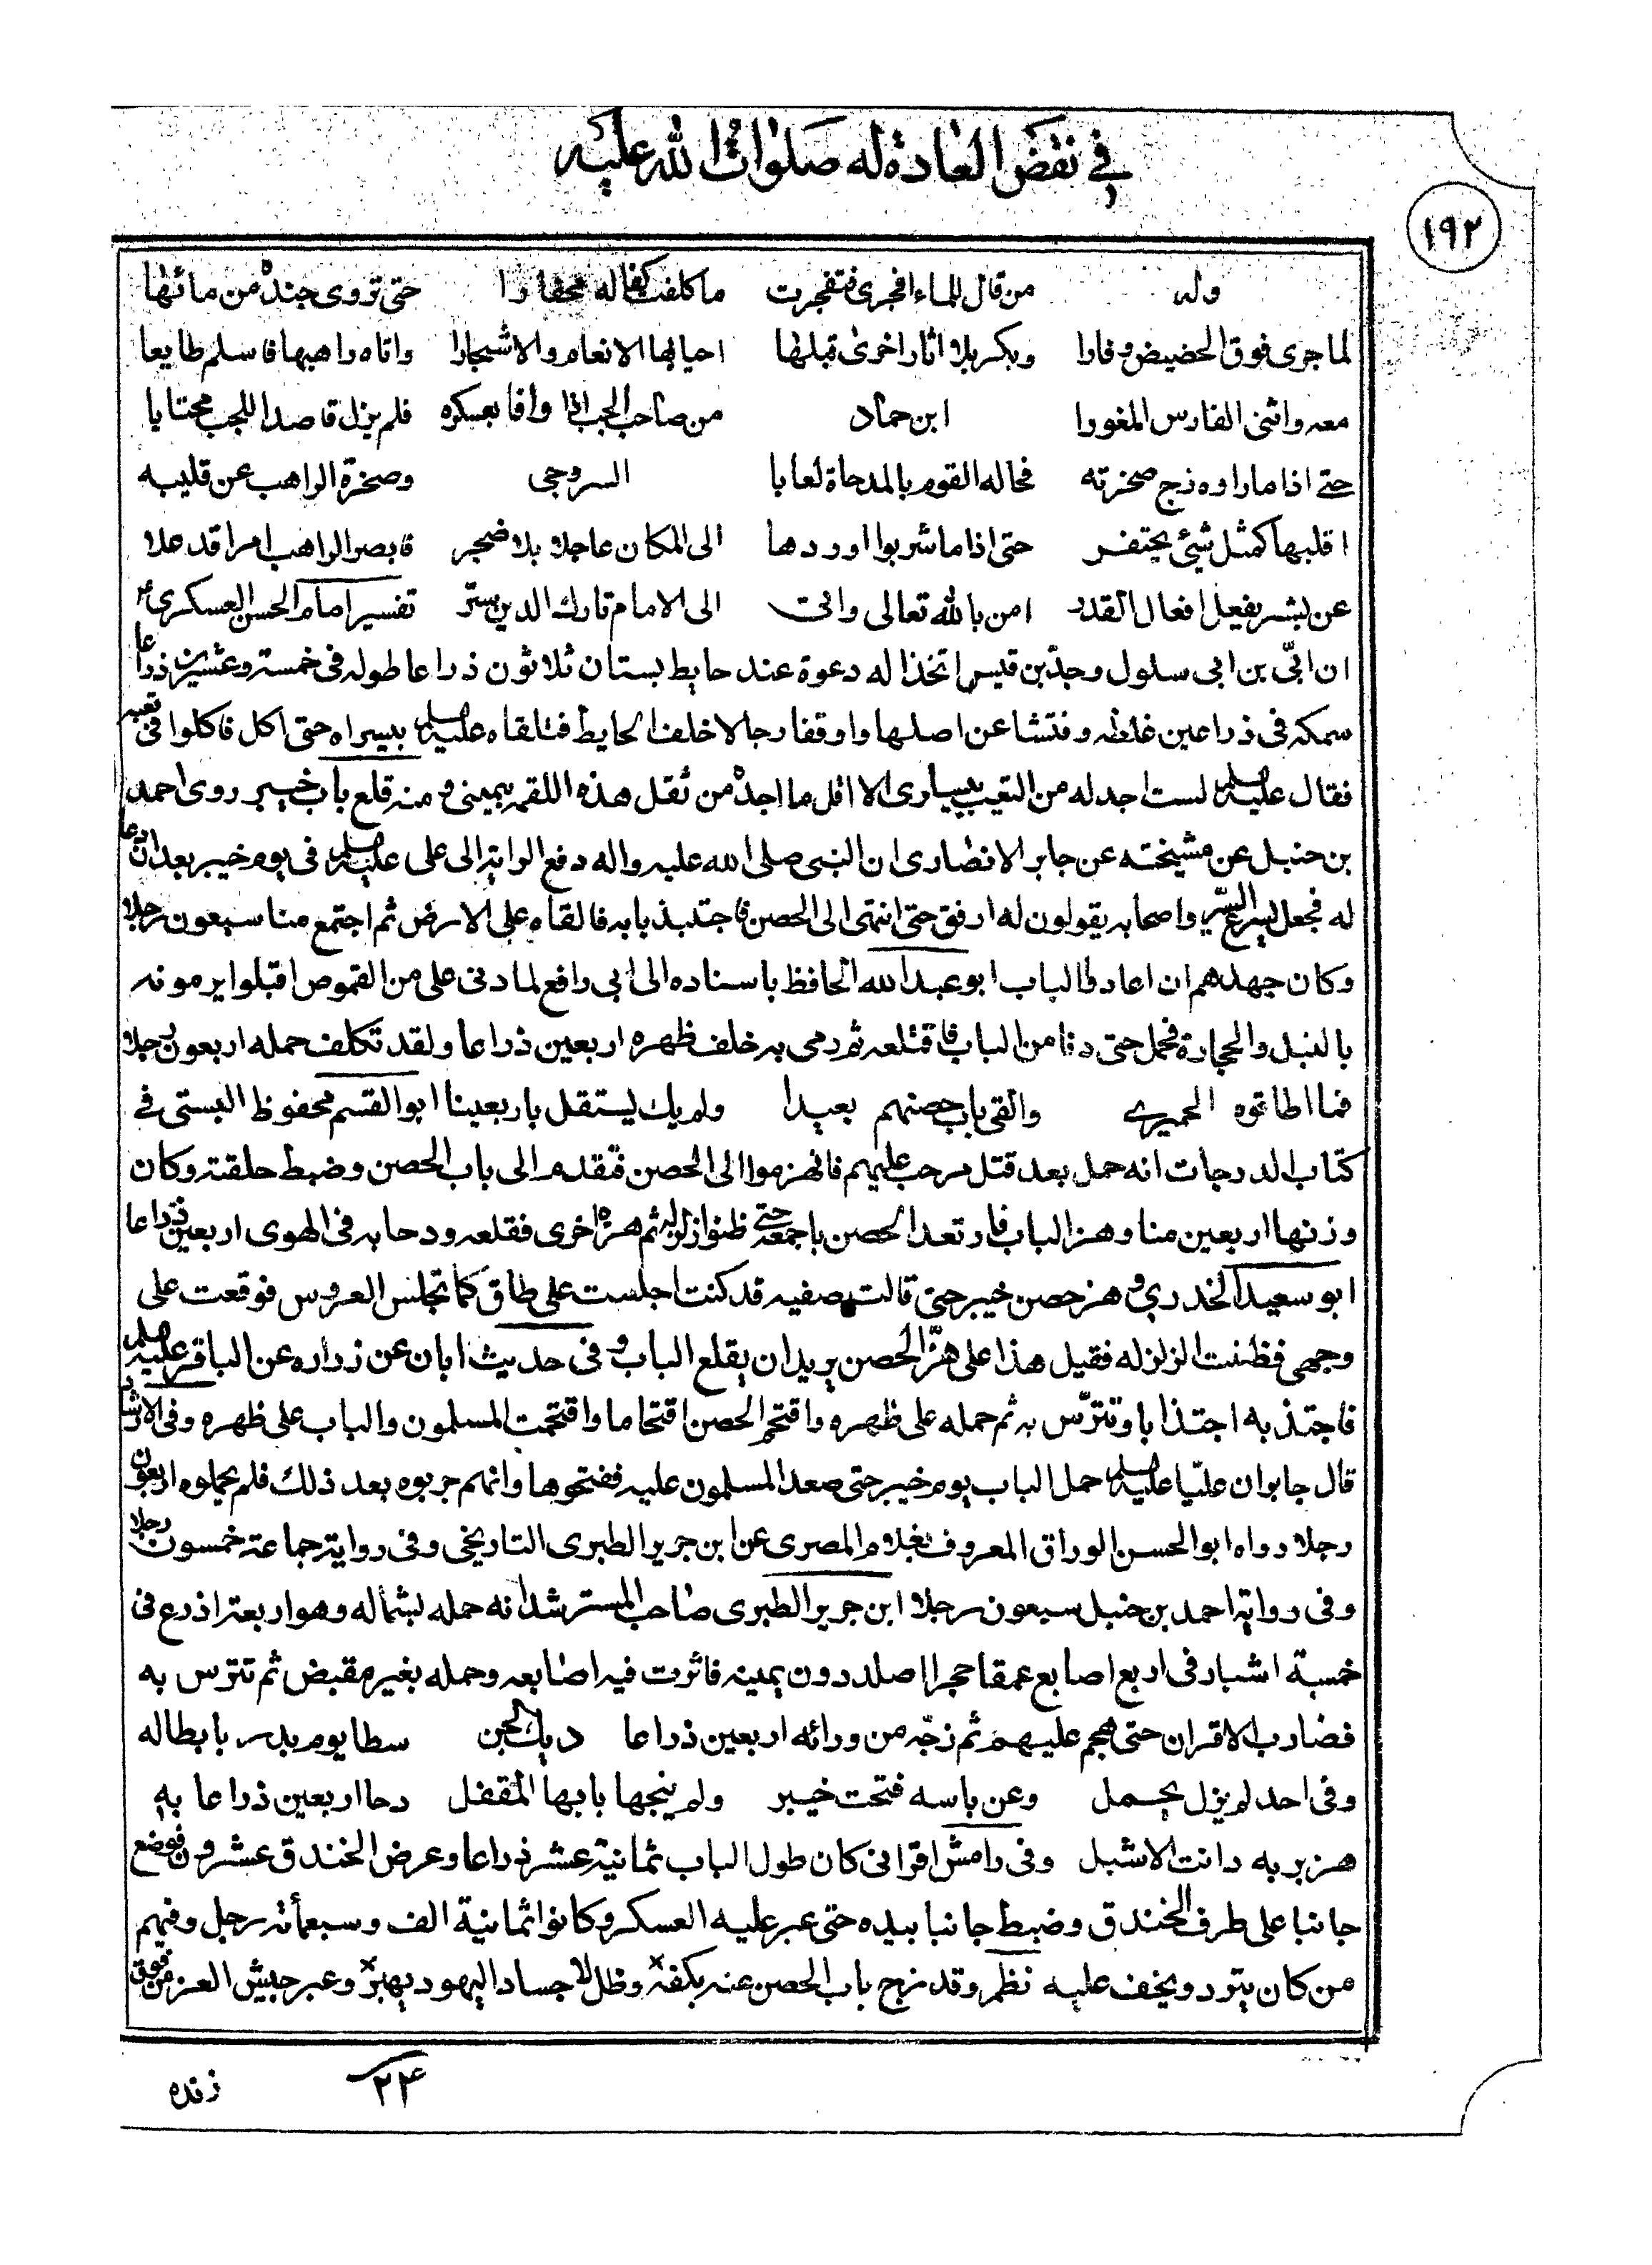 في نقض العادة له صلوات الله عليه
١٩٢
وله من قال للماء افجرى فتفجرت ما كلفت كفا له محفارا حتى تروى جنده من مائها
لما جرى فوق الحضيض وفارا وبكربلا اثار اخرى قبلها احيا بها الانعام والاشجارا واتاه راهبها فاسلم طايعا
معه واثنى الفارس المغورا ابن حماد من صاحب الجب اذا وافا بعسكره فلم يزل قاصدا للجب مجتابا
حتى اذا ما راوه زج صخرته فخاله القوم بالمدحاة لعابا السروجى وصخرة الراهب عن قليبه
اقلبها كمثل شئ يحتقر حتى اذا ما شربوا اوردها الى المكان عاجلا بلا ضجر فابصر الراهب امرا قد علا
عن بشر يفعل افعال القدر امن بالله تعالى واتى الى الامام تارك الدين ستر تفسير امام الحسن العسكرى ع
ان ابىّ بن ابى سلول وجدّ بن قيس اتخذا له دعوة عند حايط بستان ثلاثون ذراعا طوله فى خمسة وعشرين ذراعا
سمكه فى ذراعين غلظه وفتشا عن اصلها واوقفا رجالا خلف الحايط فتلقاه عليه السلم بيسراه حتى اكل فاكلوا فى تعبه
فقال عليه السلم لست اجد له من التعب بيسارى الا اقل ما اجده من ثقل هذه اللقمة بيمينى ومنه قلع باب خيبر روى احمد
بن حنبل عن مشيخته عن جابر الانصارى ان النبى صلى الله عليه واله دفع الراية الى على عليه السلم فى يوم خيبر بعد ان دعا
له فجعل يسرع السير واصحابه يقولون له ارفق حتى انتهى الى الحصن فاجتذب بابه فالقاه على الارض ثم اجتمع منا سبعون رجلا
وكان جهدهم ان اعادوا الباب ابو عبد الله الحافظ باسناده الى ابى رافع لما دنى على من القموص اقبلوا يرمونه
بالنبل والحجارة فحمل حتى دنا من الباب فاقتلعه ثم رمى به خلف ظهره اربعين ذراعا ولقد تكلف حمله اربعون رجلا
فما اطاقوه الحميرى والقى باب حصنهم بعيدا ولم يك يستقل باربعينا ابو القسم محفوظ البستى فى
كتاب الدرجات انه حمل بعد قتل مرحب عليهم فانهزموا الى الحصن فتقدم الى باب الحصن وضبط حلقته وكان
وزنها اربعين منا وهز الباب فارتعد الحصن باجمعه حتى ظنوا زلزلة ثم هزه اخرى فقلعه ودحا به فى الهوى اربعين ذراعا
ابو سعيد الخدرى وهز حصن خيبر حتى قالت صفيه قد كنت اجلست على طاق كما تجلس العروس فوقعت على
وجهى فظننت الزلزله فقيل هذا على هزّ الحصن يريد ان يقلع الباب وفى حديث ابان عن زراره عن الباقر عليه السلم
فاجتذبه اجتذابا وتترّس به ثم حمله على ظهره واقتحم الحصن اقتحاما واقتحمت المسلمون والباب على ظهره وفى الارشاد
قال جابر ان عليّا عليه السلم حمل الباب يوم خيبر حتى صعد المسلمون عليه ففتحوها وانهم جربوه بعد ذلك فلم يحملوه اربعون
رجلا رواه ابو الحسن الوراق المعروف بغلام المصرى عن ابن جرير الطبرى التاريخى وفى رواية جماعة خمسون رجلا
وفى رواية احمد بن حنبل سبعون رجلا ابن جرير الطبرى صاحب المسترشد انه حمله بشماله وهو اربعة اذرع فى
خمسة اشبار فى اربع اصابع عمقا حجرا اصلد دون يمينه فاثرت فيه اصابعه وحمله بغير مقبض ثم تترس به
فضارب الاقران حتى هجم عليهم ثم زجّه من ورائه اربعين ذراعا ديك الجن سطا يوم بدر بابطاله
وفى احد لم يزل يحمل وعن باسه فتحت خيبر ولم ينجها بابها المقفل دحا اربعين ذراعا به
هزبر به دانت الاشبل وفى رامش افزاى كان طول الباب ثمانية عشر ذراعا وعرض الخندق عشرون فوضع
جانبا على طرف الخندق وضبط جانبا بيده حتى عبر عليه العسكر وكانوا ثمانية الف وسبعمأة رجل وفيهم
من كان يتردد ويخف عليه نظم وقد زج باب الحصن عنه بكفه وظل لاجساد اليهود يهبر وعبر جيش العز من فوق
٢٤
زنده